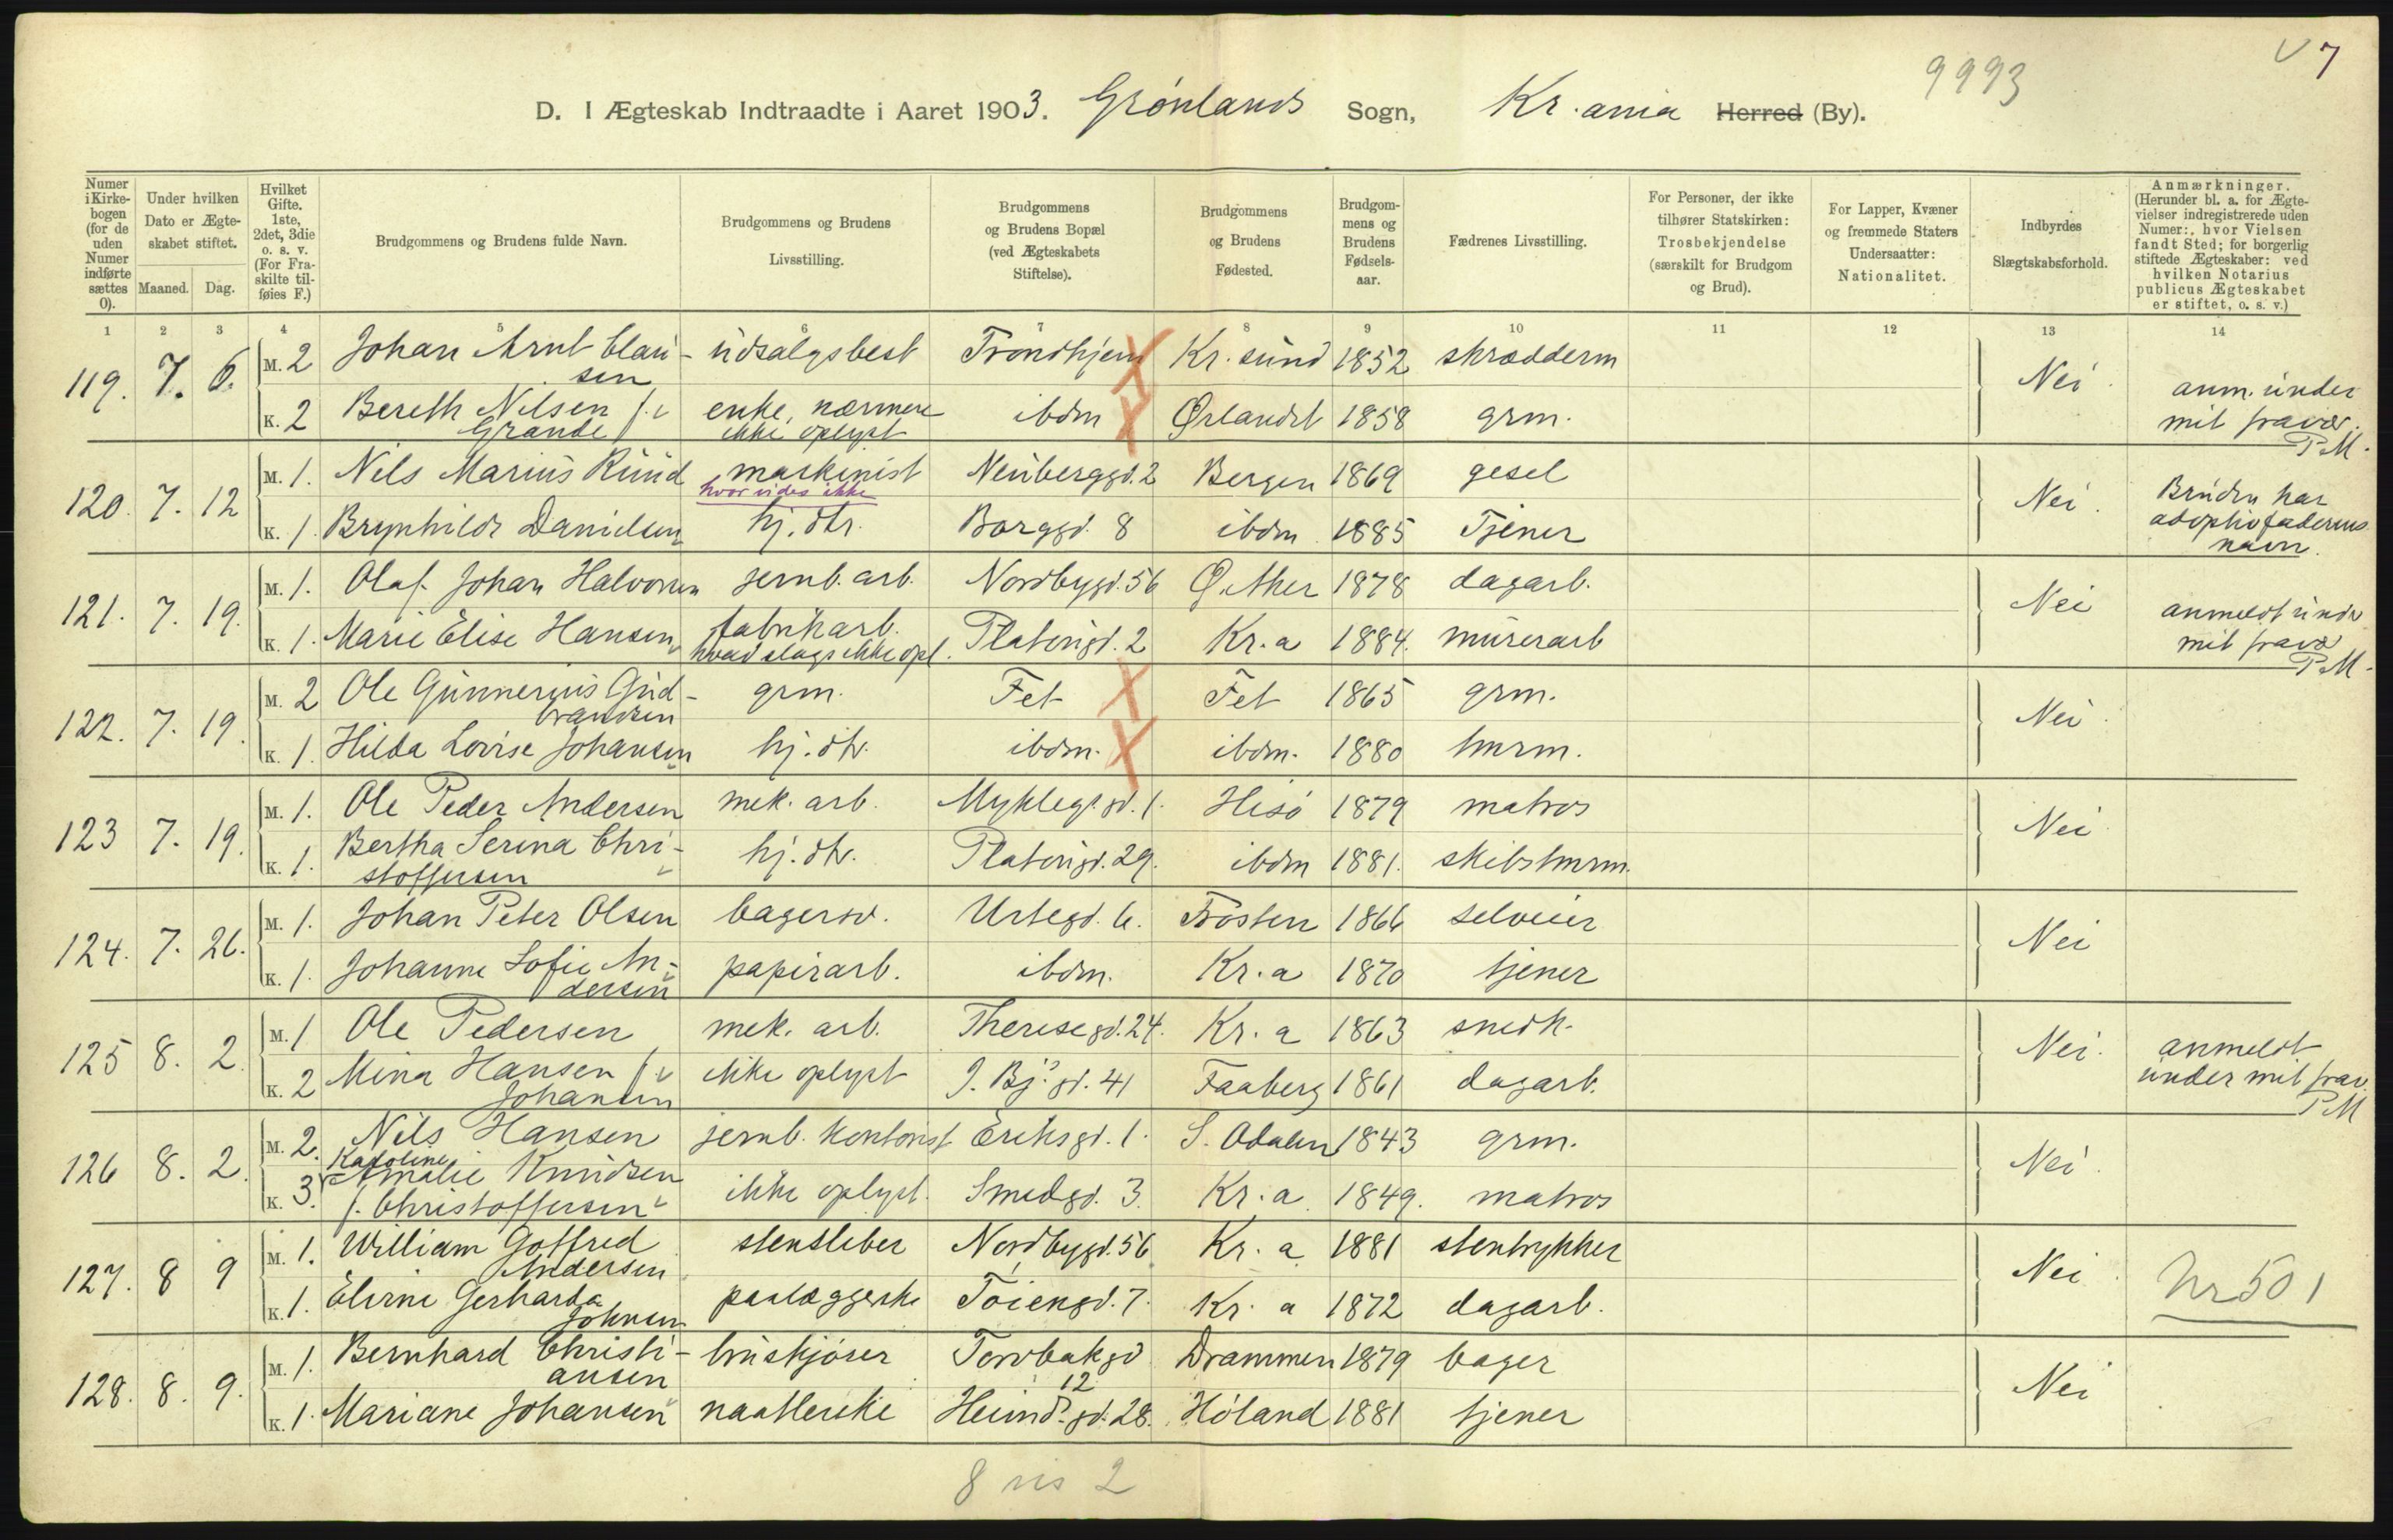 V 7
9993
D. I Ægteskab Indtraadte i Aaret 1903. Grønlands Sogn, Kr.ania Herred (By).
Numer i Kirke-bogen (for de uden Numer indførte sættes 0).
Under hvilken Dato er Ægte-skabet stiftet.
Maaned. Dag.
Hvilket Gifte. 1ste, 2det, 3die o. s. v. (For Fra-skilte til-føies F.)
Brudgommens og Brudens fulde Navn.
Brudgommens og Brudens Livsstilling.
Brudgommens og Brudens Bopæl (ved Ægteskabets Stiftelse).
Brudgommens og Brudens Fødested.
Brudgom-mens og Brudens Fødsels-aar.
Fædrenes Livsstilling.
For Personer, der ikke tilhører Statskirken: Trosbekjendelse (særskilt for Brudgom og Brud).
For Lapper, Kvæner og fremmede Staters Undersaatter: Nationalitet.
Indbyrdes Slægtskabsforhold.
Anmærkninger. (Herunder bl. a. for Ægte-vielser indregistrerede uden Numer:, hvor Vielsen fandt Sted; for borgerlig stiftede Ægteskaber: ved hvilken Notarius publicus Ægteskabet er stiftet, o. s. v.)
1 2 3 4 5 6 7 8 9 10 11 12 13 14
119. 7. 6. M. 2 Johan Arnt Clau-sen udsalgsbest Trondhjem Kr.sund 1852 skrædderm Nei anm. under mit fravær. P.M.
K. 2 Bereth Nilsen f. Grande enke, nærmere ikke oplyst ibdm Ørlandet 1858 grm.
120. 7. 12 M. 1. Nils Marius Ruud maskinist hvor vides ikke Neuberggd. 2 Bergen 1869 gesel Nei Bruden har adoptivfaderens navn.
K. 1. Brynhilde Danielsen hj. dtr. Borggd. 8 ibdm 1885 Tjener
121. 7. 19. M. 1. Olaf Johan Halvorsen jernb. arb. Nordbygd. 56 Ø. Aker 1878 dagarb. Nei anmeldt under mit fravær P.M.
K. 1. Marie Elise Hansen fabrikarb. hvad slags ikke opl. Platousgd. 2 Kr.a 1884. murerarb
122. 7. 19. M. 2 Ole Gunnerius Gud-brandsen grm. Fet Fet 1865 grm. Nei
K. 1. Hilda Lovise Johansen hj. dtr. ibdm. ibdm. 1880 tmrm.
123 7. 19. M. 1. Ole Peder Andersen mek. arb. Myklegs gd. 1. Hisø 1879 matros Nei
K. 1. Bertha Serina Chri-stoffersen hj. dtr. Platousgd. 29. ibdm 1881. skibstmrm.
124. 7. 26. M. 1. Johan Peter Olsen bagersv. Urtegd. 6. Frosten 1866 selveier Nei
K. 1. Johanne Sofie An-dersen papirarb. ibdm. Kr.a 1870 tjener
125 8. 2. M. 1 Ole Pedersen mek. arb. Theresegd. 24. Kr. a 1863 snedk. Nei. anmeldt under mit frav. P.M
K. 2 Mina Hansen f. Johansen ikke oplyst J. Bj.s gd. 41 Faaberg 1861 dagarb.
126 8. 2. M. 2. Nils Hansen jernb. kontorist Eriksgd. 1. S. Odalen 1843 grm. Nei
K. 3. Karoline Amalie Knudsen f. Christoffersen ikke oplyst. Smedgd. 3. Kr.a. 1849. matros
127. 8 9 M. 1. William Gotfred Andersen stensliber Nordbygd. 56 Kr. a 1881 stentrykker Nei Nr 501
K. 1. Elvine Gerharda Johnsen paalæggerske Tøiengd. 7. Kr. a 1872 dagarb.
128. 8. 9. M. 1. Bernhard Christi-ansen huskjører Torvbakgd 12 Drammen 1879 bager Nei
K. 1. Mariane Johansen naatlerske Heimd.s gd. 28. Høland 1881 tjener
8 vis 2